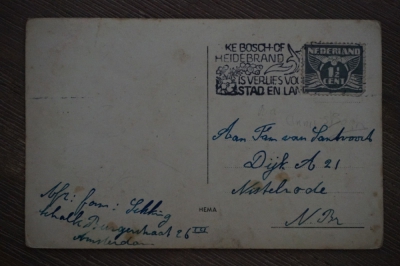 KE BOSCH-OF
HEIDEBRAND
IS VERLIES VO
STAD EN LAN
NEDERLAND
1½
CENT
Aan Fam van Santvoort
Dijk A 21
Nistelrode
N. Br
Afz: fam: Sekking
straat 26 III
Amsterdam
HEMA